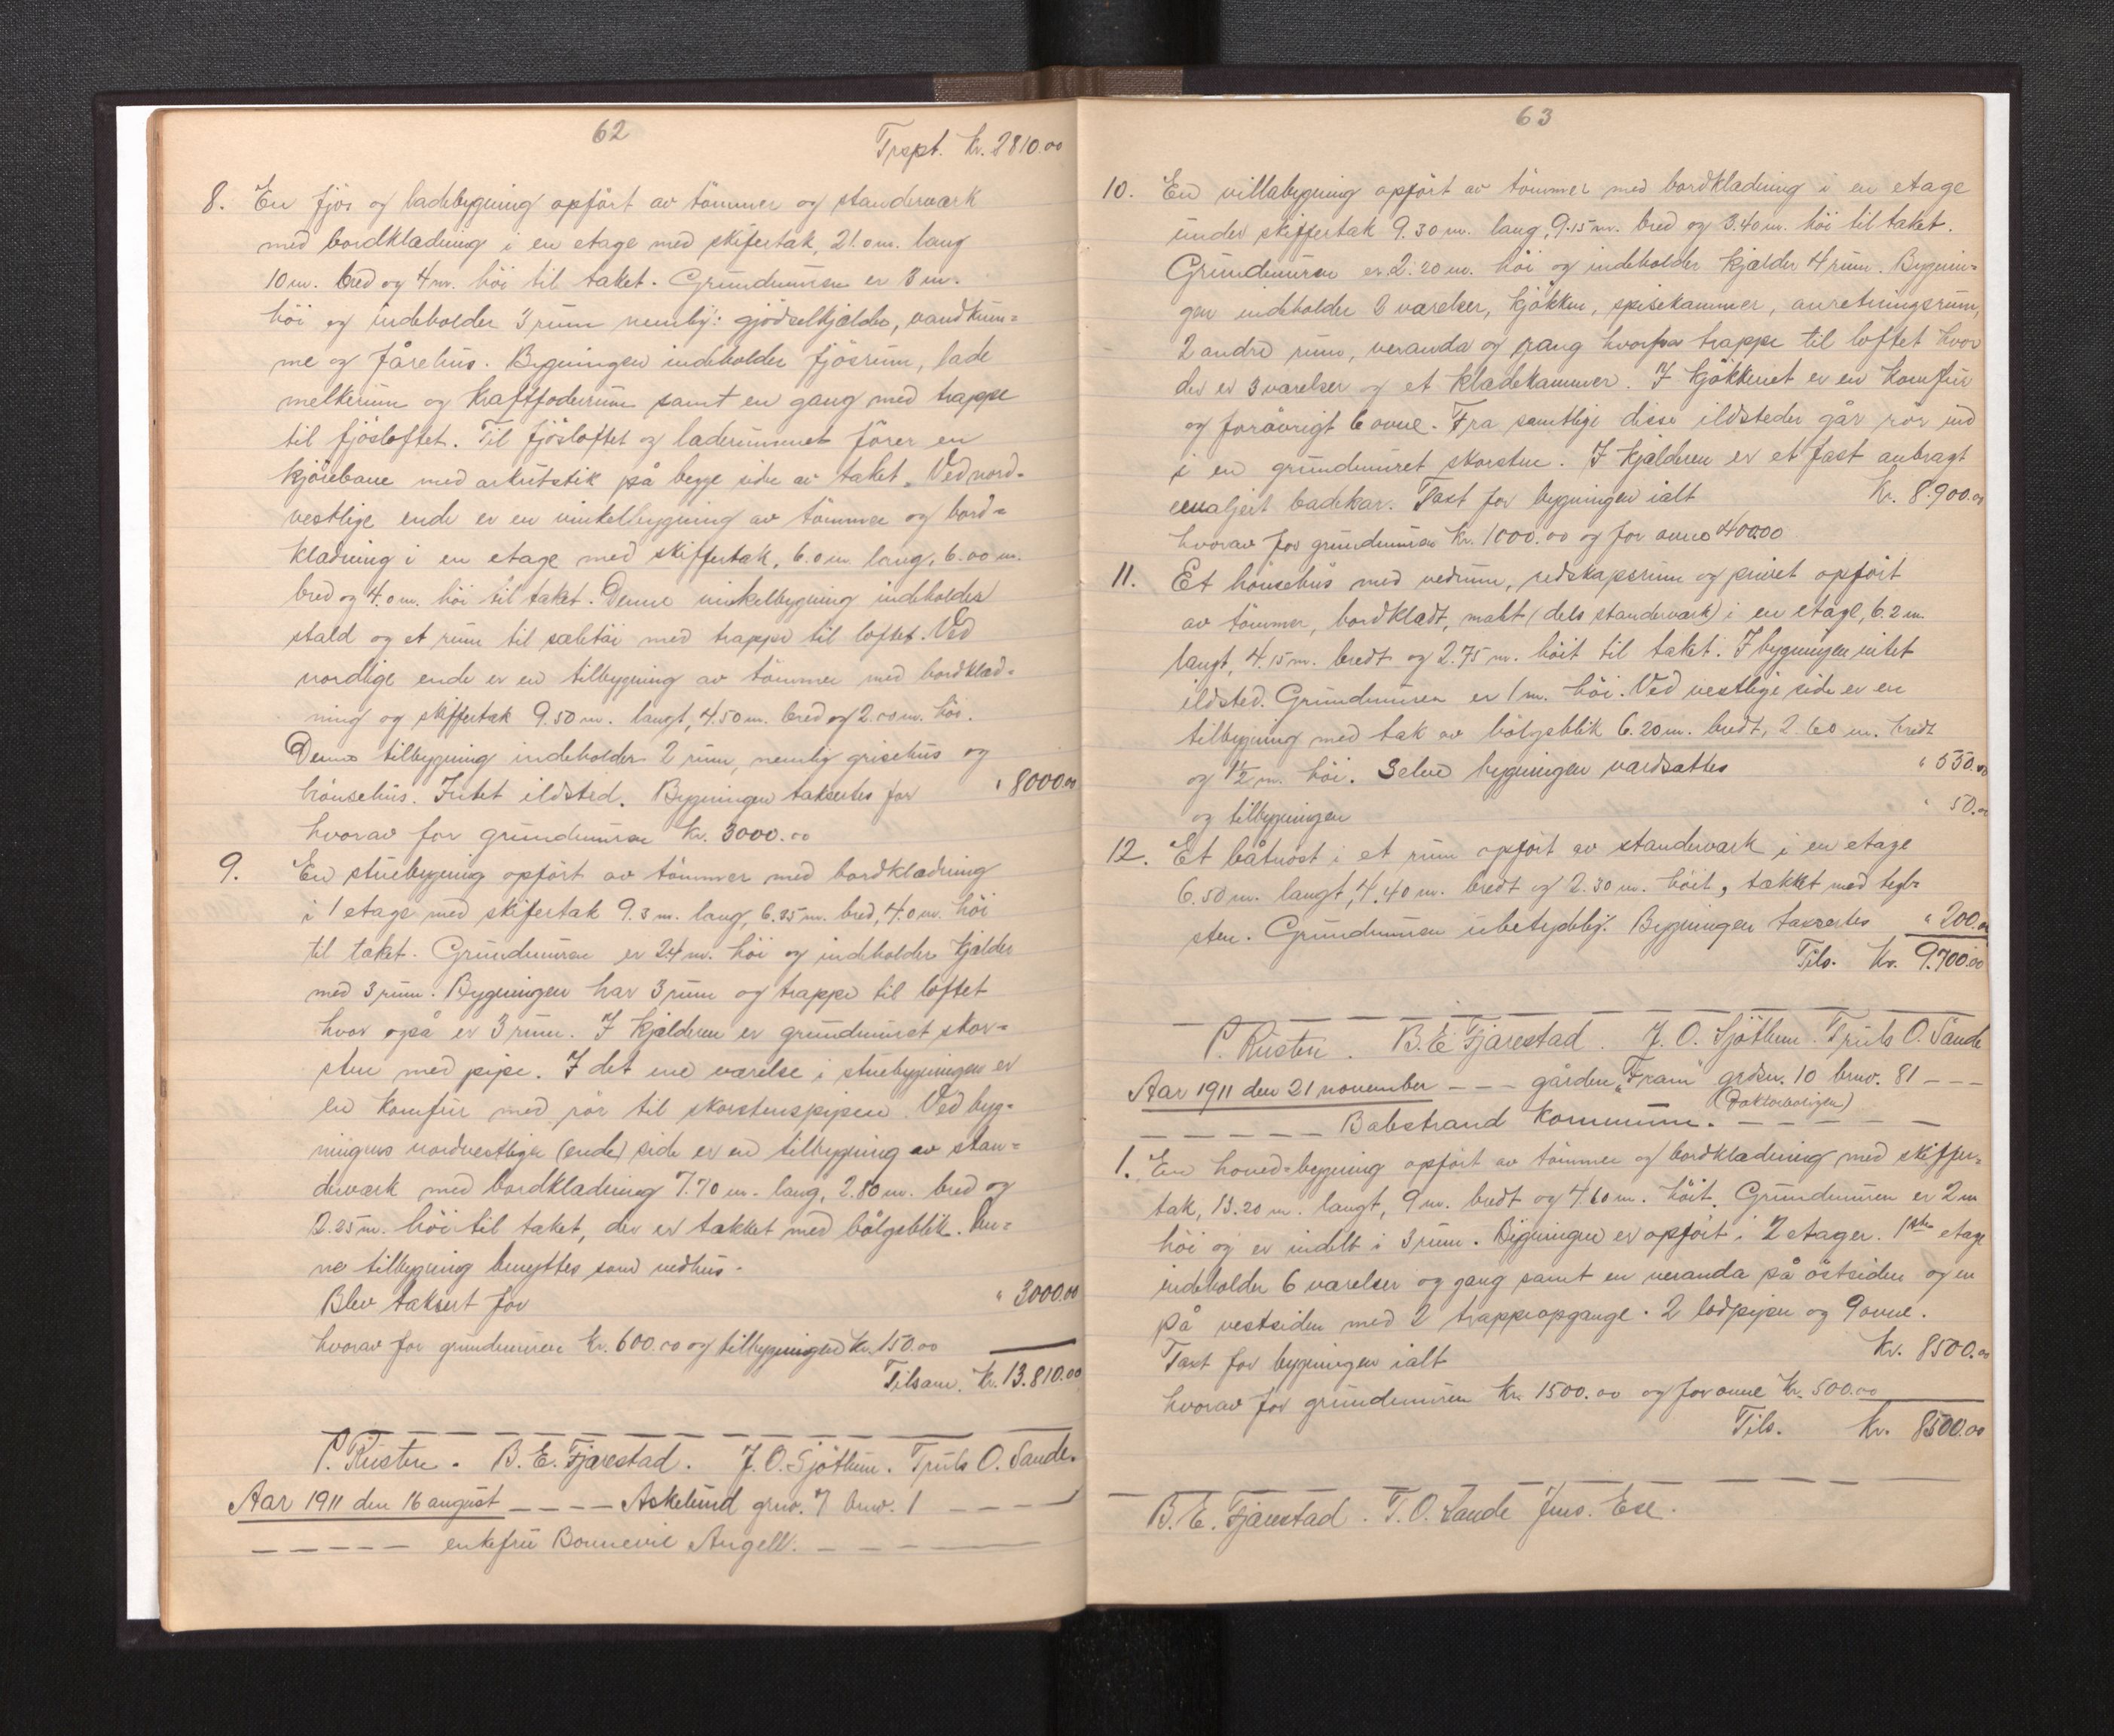 62
Trspt. kr. 2810.00
8. En fjös og ladebygning opfört av tömmer og standerværk
med bordklædning i en etage med skifertak, 21.0 m. lang
10 m. bred og 4 m. höi til taket. Grundmuren er 3 m.
höi og indeholder 3 rum nemlig: gjödselkjælder, vandkum=
me og fårehus. Bygningen indeholder fjösrum, lade
melkerum og kraftfoderrum samt en gang med trappe
til fjösloftet. Til fjösloftet og laderummet förer en
kjörebane med arkutstik på begge sider av taket. Ved nord=
vestlige ende er en vinkelbygning av tömmer og bord=
klædning i en etage med skiffertak, 6.0 m. lang, 6.00 m.
bred og 4.0 m. höi til taket. Denne vinkelbygning indeholder
stald og et rum til sæletöi med trappe til loftet. Ved
nordlige ende er en tilbygning av tömmer med bordklæd=
ning og skiffertak 9.50 m. langt, 4.50 m. bred og 2.00 m. höi.
Denne tilbygning indeholder 2 rum, nemlig grisehus og
hönsehus. Intet ildsted. Bygningen taksertes for " 8000.00
hvorav for grundmuren kr. 3000.00
9. En stuebygning opfört av tömmer med bordklædning
i 1 etage med skifertak 9.3 m. lang, 6.35 m. bred, 4.0 m. höi
til taket. Grundmuren er 24 m. höi og indeholder kjælder
med 3 rum. Bygningen har 3 rum og trappe til loftet
hvor også er 3 rum. I kjælderen er grundmuret skor=
sten med pipe. I det ene værelse i stuebygningen er
en komfur med rör til skorstenspipen. Ved byg=
ningens nordvestlige (ende) side er en tilbygning av stan=
derværk med bordklædning 7.70 m. lang, 2.80 m. bred og
2.25 m. höi til taket, der er tækket med bölgeblik. Den=
ne tilbygning benyttes som vedhus.
Blev taksert for " 3000.00
hvorav for grundmuren kr. 600.00 og tilbygningen kr. 150.00
Tilsam. kr. 13.810.00
P. Risten. B. E. Fjærestad. J. O. Sjöthun. Truls O. Sande.
Aar 1911 den 16 august ---- Askelund grno. 7 bruno. 1 ----
----- enkefru Bonnevie Angell. -----
63
10. En villabygning opfört av tömmer med bordklædning i en etage
under skiffertak 9.30 m. lang, 9.15 m. bred og 3.40 m. höi til taket.
Grundmuren er 2.20 m. höi og indeholder kjælder 4 rum. Bygnin=
gen indeholder 2 værelser, kjökken, spisekammer, anretningsrum,
2 andre rum, veranda og gang hvorfra trappe til loftet hvor
der er 3 værelser og et klædekammer. I kjökkenet er en komfur
og forövrigt 6 ovne. Fra samtlige disse ildsteder går rör ind
i en grundmuret skorsten. I kjælderen er et fast anbragt
emaljert badekar. Taxt for bygningen ialt Kr. 8.900.00
hvorav for grundmuren kr. 1000.00 og for ovne 400.00
11. Et hönsehus med vedrum, redskapsrum og privet opfört
av tömmer, bordklædt, malt (dels standerværk) i en etage, 6.2 m.
langt, 4.15 m. bredt og 2.75 m. höit til taket. I bygningen intet
ildsted. Grundmuren er 1 m. höi. Ved vestlige side er en
tilbygning med tak av bölgeblik 6.20 m. bredt, 2.60 m. bredt
og 1½ m. höi. Selve bygningen værdsattes " 550.00
og tilbygningen " 50.00
12. Et båtnöst i et rum opfört av standerværk i en etage
6.50 m. langt, 4.40 m. bredt og 2.30 m. höit, tækket med tegl=
sten. Grundmuren ubetydelig. Bygningen taksertes " 200.00
Tils. kr. 9.700.00
P. Risten. B. E. Fjærestad. J. O. Sjöthun. Truls O. Sande
Aar 1911 den 21 november --- gården "Fram" grdsn. 10 brno. 81 ---
(Doktorboligen)
----- Balestrand kommune. -----
1. En hoved=bygning opfört av tömmer og bordklædning med skiffer=
tak, 13.20 m. langt, 9 m. bredt og 4.60 m. höit. Grundmuren er 2 m
höi og er indelt i 3 rum. Bygningen er opfört i 2 etager. 1ste etage
indeholder 6 værelser og gang samt en veranda på östsiden og en
på vestsiden med 2 trappeopgange. 2 lodpiper og 9 ovne.
Taxt for bygningen ialt Kr. 8500.00
hvorav for grundmuren kr. 1500.00 og for ovne kr. 500.00
Tils. kr. 8500.00
B. E. Fjærestad. T. O. Sande Jens. Ese.